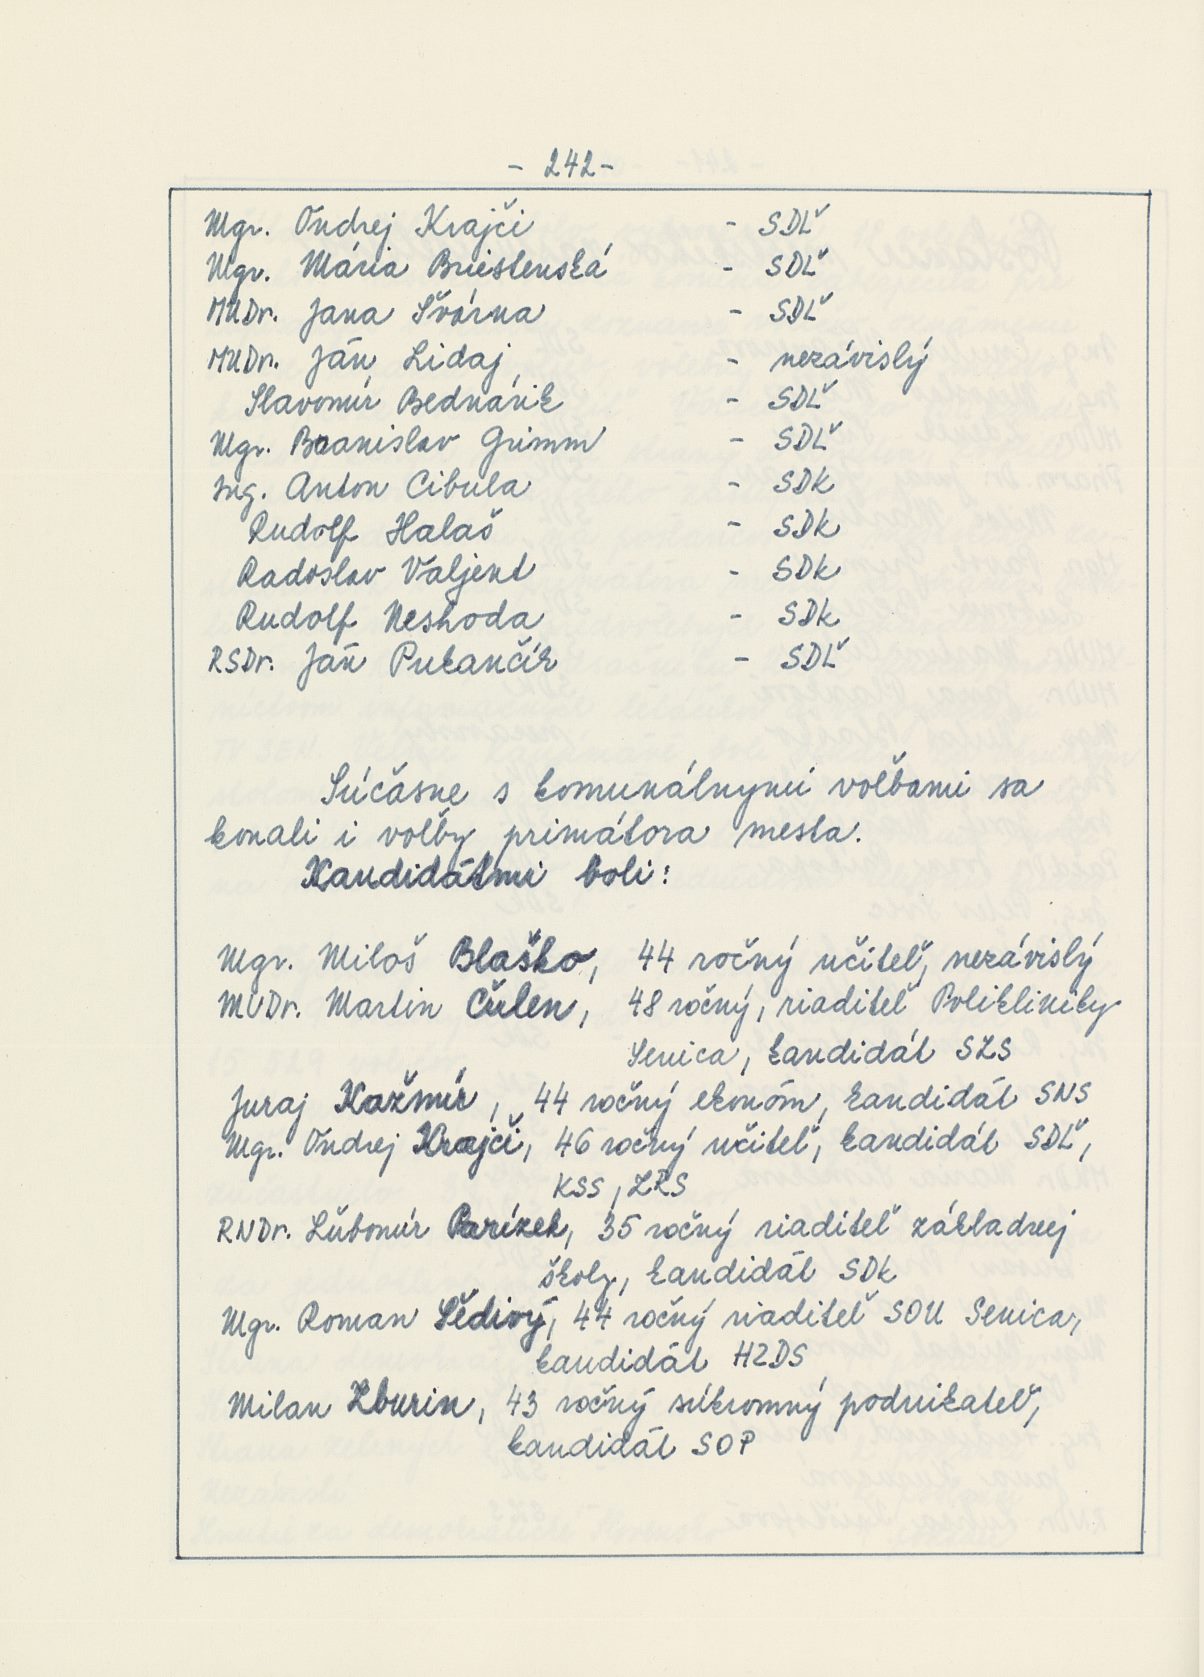 - 242 -
Mgr. Ondrej Krajči - SDĽ
Mgr. Mária Briestenská - SDĽ
MUDr. Jana Švárna - SDĽ
MUDr. Ján Lidaj - nezávislý
Slavomír Bednárik - SDĽ
Mgr. Branislav Grimm - SDĽ
Ing. Anton Cibula - SDK
Rudolf Halaš - SDK
Radoslav Valjent - SDK
Rudolf Neshoda - SDK
RSDr. Ján Pukančík - SDĽ
Súčasne s komunálnymi voľbami sa
konali i voľby primátora mesta.
Kandidátmi boli:
Mgr. Miloš Blaško, 44 ročný učiteľ, nezávislý
MUDr. Martin Čulen, 48 ročný, riaditeľ Polikliniky
Senica, kandidát SZS
Juraj Kažmír, 44 ročný ekonóm, kandidát SNS
Mgr. Ondrej Krajči, 46 ročný učiteľ, kandidát SDĽ,
KSS, ZRS
RNDr. Ľubomír Parízek, 35 ročný riaditeľ základnej
školy, kandidát SDK
Mgr. Roman Šedivý, 44 ročný riaditeľ SOU Senica,
kandidát HZDS
Milan Zburin, 43 ročný súkromný podnikateľ,
kandidát SOP